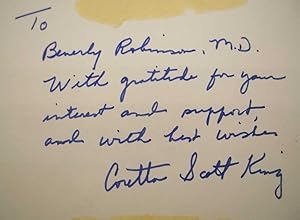 To
Beverly Robinson, M.D.
With gratitude for your
interest and support,
and with best wishes
Coretta Scott King